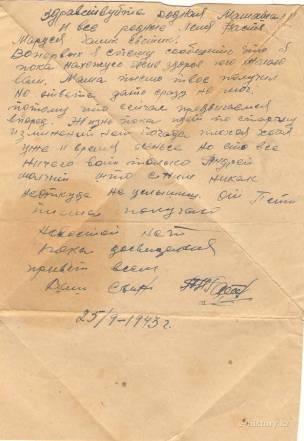 Здравствуйте родная Мамаша!!
И все родные Леня Настя
Маруся Хима
Во первых спешу сообщить что я
пока нахожусь жив здоров чего желаю
вам, Мама письмо твое получил
Но ответа дать сразу не мог.
потому что сейчас продвигаемся
вперед. Жизнь пока идет по старому
изменений нет погода плохая
уже и время осеньее но это все
ничего вот только Андрей
молчит што с ним никак
неоткуда не услышиш. От Пети
письма получаю
Новостей нет
Пока досвидания
привет всем
Ваш Сын
25/9-1943 г.